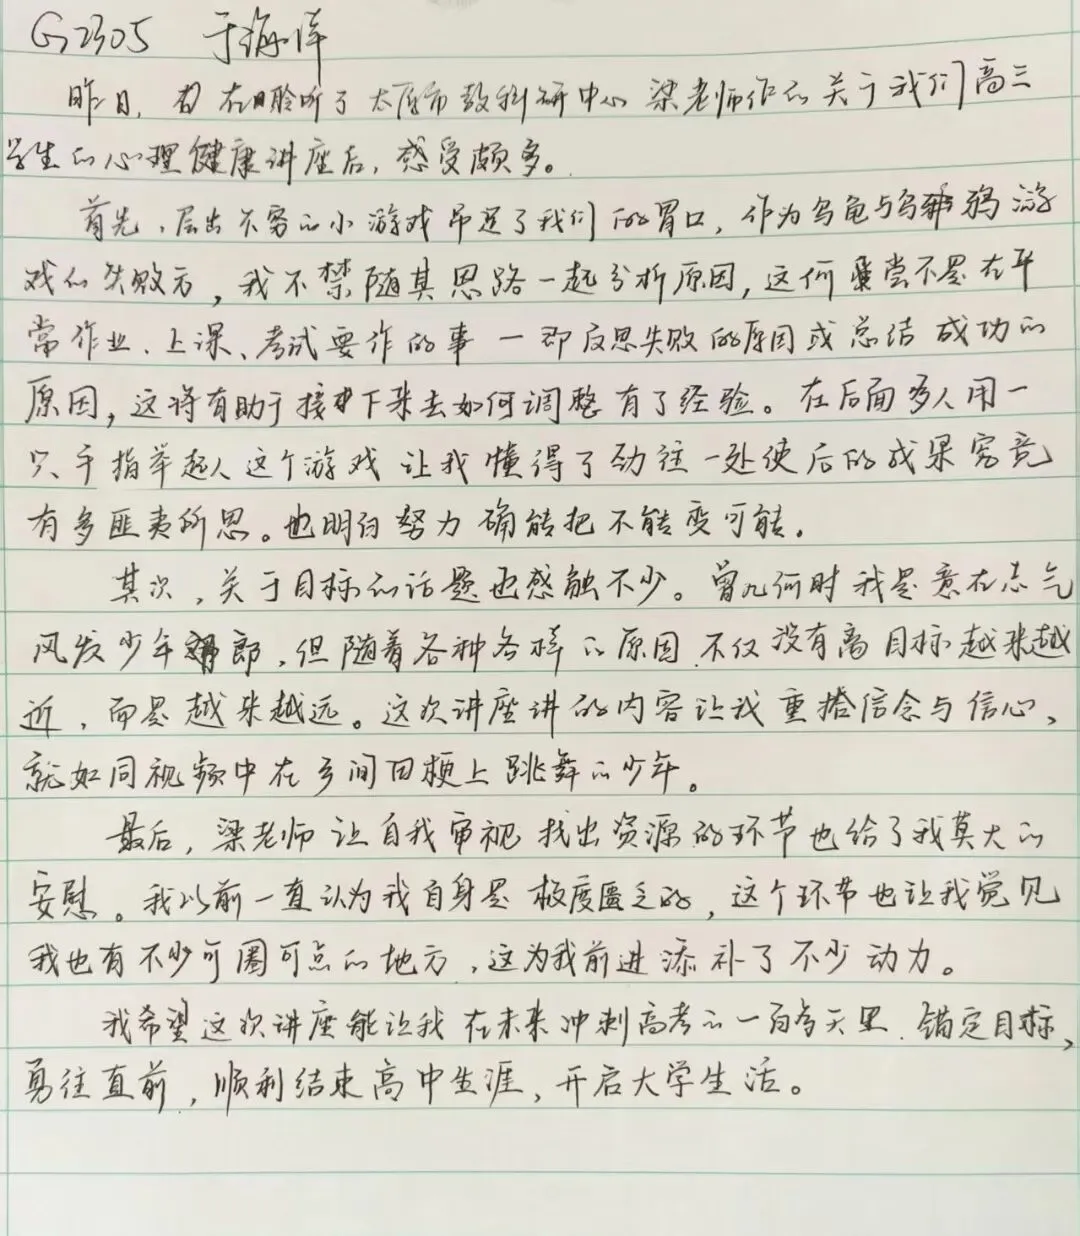 G2305 于海洋
昨日，在聆听了太原市教科研中心梁老师作的关于我们高三
学生的心理健康讲座后，感受颇多。
首先，层出不穷的小游戏吊足了我们的胃口，作为乌龟与乌鸦游
戏的失败方，我不禁随其思路一起分析原因，这何尝不是在平
常作业、上课、考试要作的事一即反思失败的原因或总结成功的
原因，这将有助于接下来去如何调整有了经验。在后面多人用一
只手指举起人这个游戏让我懂得了劲往一处使后的成果究竟
有多匪夷所思。也明白努力确能把不能变可能。
其次，关于目标的话题也感触不少。曾几何时我是意在志气
风发少年郎，但随着各种各样的原因不仅没有离目标越来越
近，而是越来越远。这次讲座讲的内容让我重拾信念与信心，
就如同视频中在乡间田梗上跳舞的少年。
最后，梁老师让自我审视找出资源的环节也给了我莫大的
安慰。我以前一直认为我自身是极度匮乏的，这个环节也让我觉见
我也有不少可圈可点的地方，这为我前进添补了不少动力。
我希望这次讲座能让我在未来冲刺高考的一百多天里，锚定目标，
勇往直前，顺利结束高中生涯，开启大学生活。